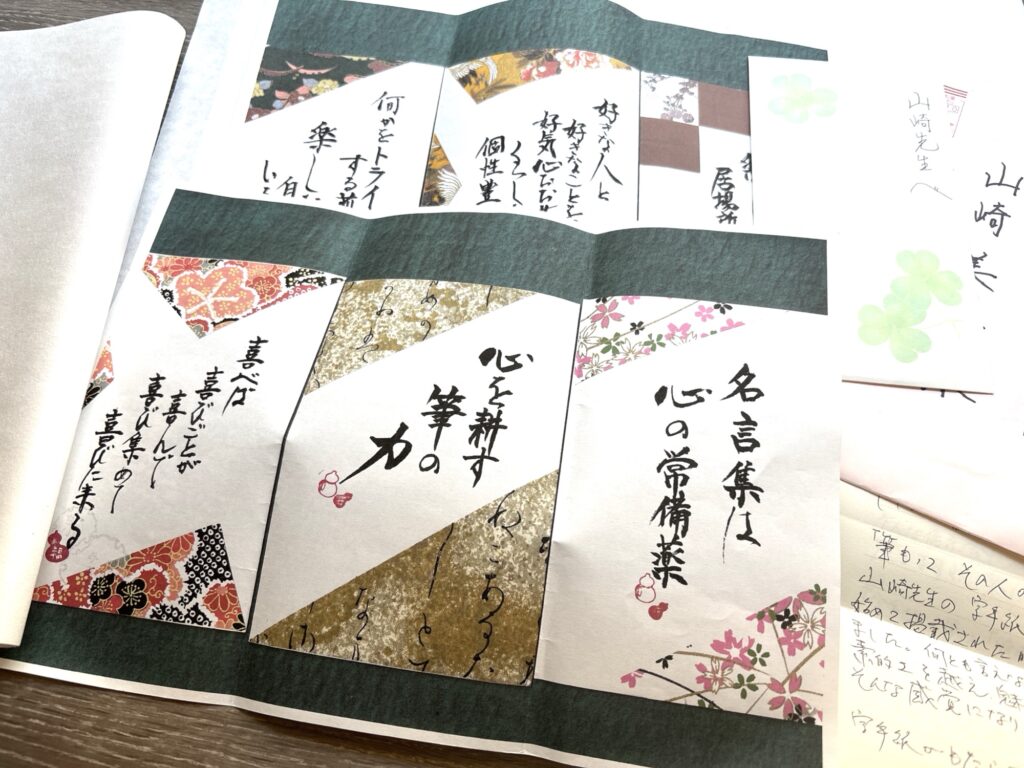 名言集は
心の常備薬
心を耕す
筆の
力
喜べば
喜びごとが
喜んで
喜び集めて
喜びに来る
福
好きな人と
好きなことを
くらし
個性豊
何かをトライ
する
楽しい
居場所
山崎先生へ
山崎美
筆もって その人の
山崎先生の字手紙
始めて掲載された
ました。何とも言えな
素的工を越え魅
そんな感覚になり
字手紙がもたら